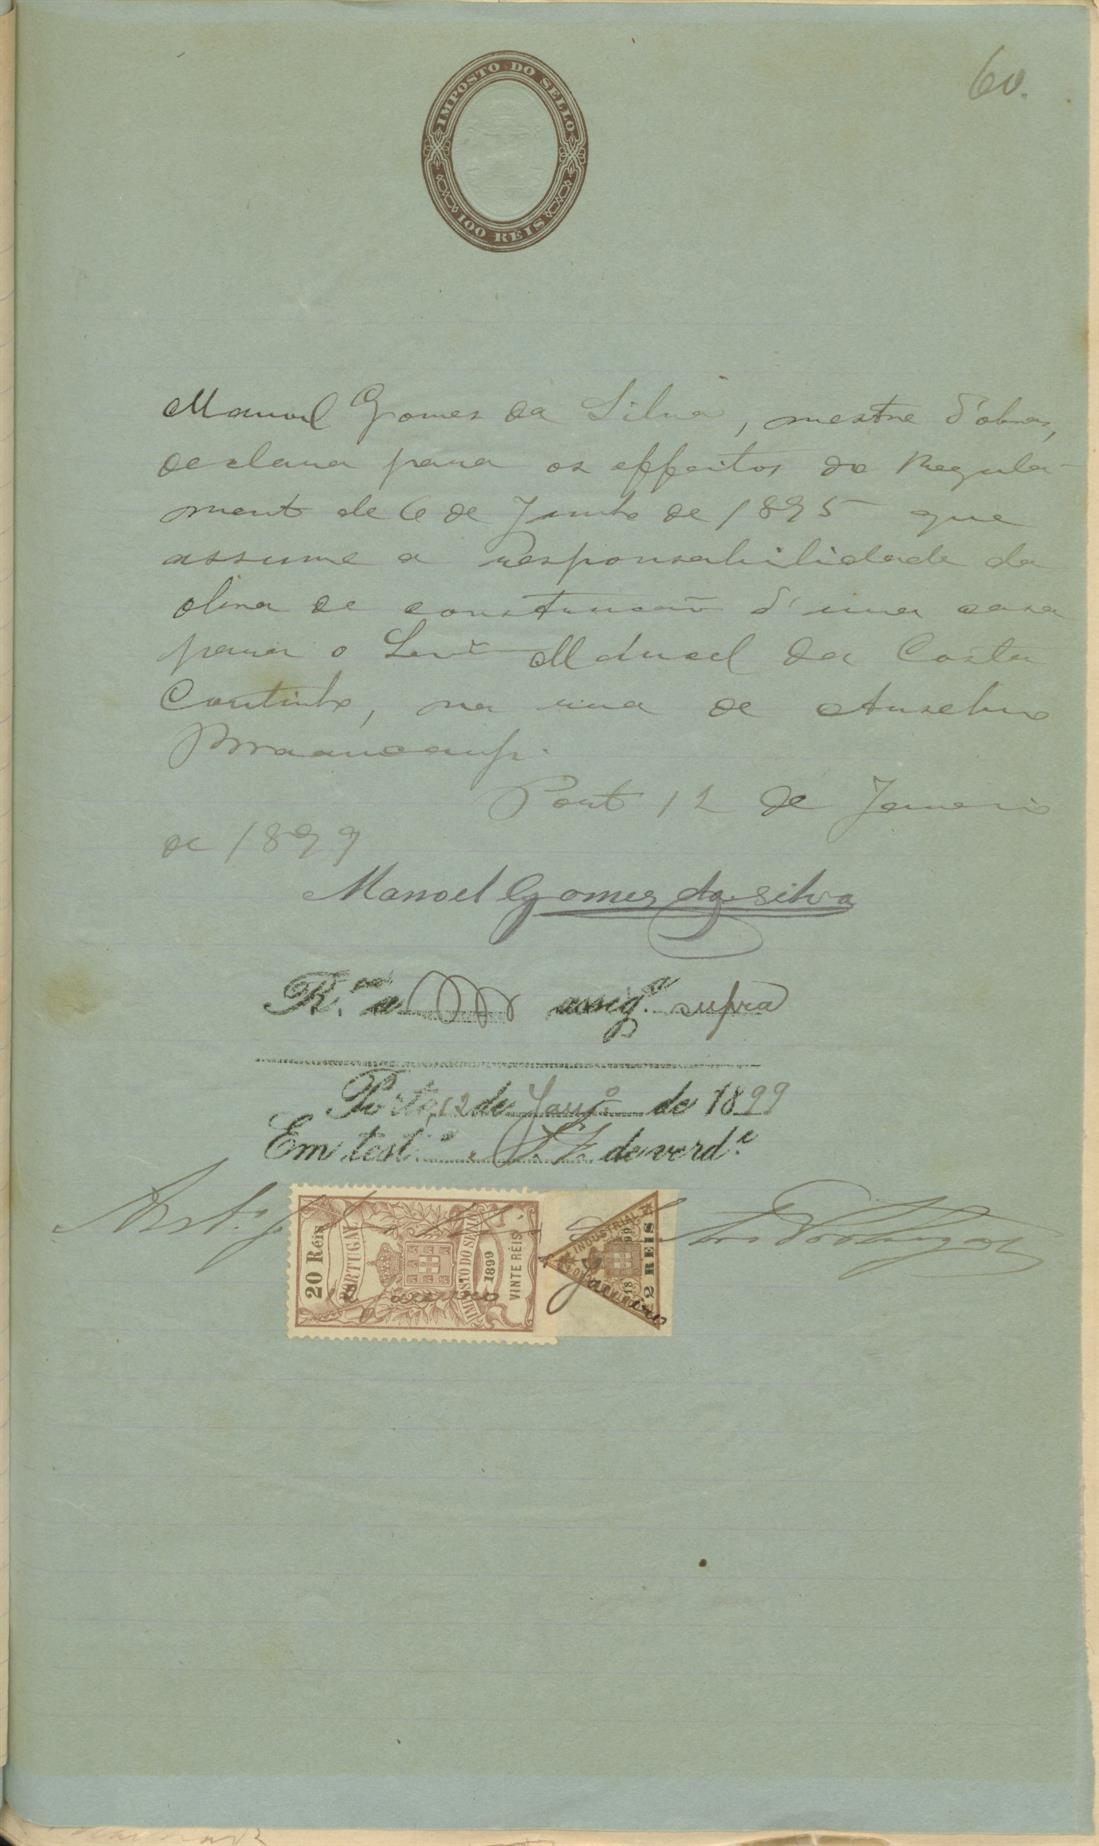 60.
IMPOSTO DO SELLO
100 REIS
Manoel Gomes da Silva, mestre d'obras,
declara para os effeitos do Regula-
mento de 6 de Junho de 1895 que
assume a responsabilidade da
obra de construcção d'uma casa
para o Manoel da Costa
Coutinho, na rua de Anselmo
Braancamp.
Porto 12 de Janeiro
de 1899
Manoel Gomes da Silva
R.co a assig.a supra
Porto, 12 de Janr.o de 1899
Em test.o de verd.e
20 Réis
PORTUGAL
IMPOSTO DO SELLO
1899
VINTE RÉIS
Janeiro
INDUSTRIAL
1899
2 REIS
Janeiro